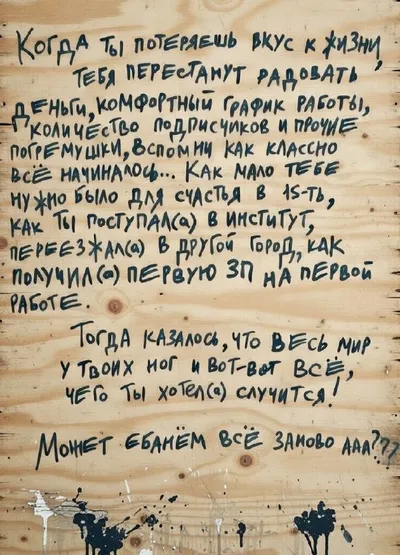 Когда ты потеряешь вкус к жизни,
тебя перестанут радовать
деньги, комфортный график работы,
количество подписчиков и прочие
погремушки, вспомни как классно
всё начиналось... Как мало тебе
нужно было для счастья в 15-ть,
как ты поступал(а) в институт,
переезжал(а) в другой город, как
получил(а) первую ЗП на первой
работе.
Тогда казалось, что весь мир
у твоих ног и вот-вот всё,
чего ты хотел(а) случится!
Может ебанём всё заново ааа???